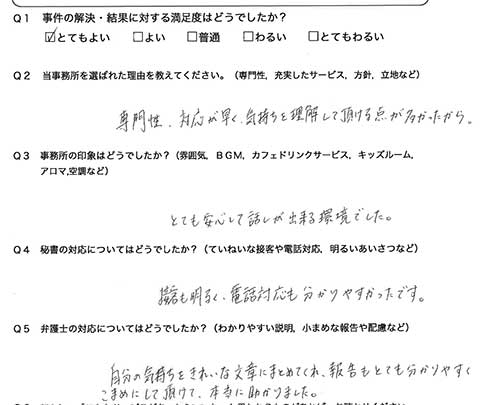 Q1 事件の解決・結果に対する満足度はどうでしたか？
☑とてもよい □よい □普通 □わるい □とてもわるい
Q2 当事務所を選ばれた理由を教えてください。（専門性，充実したサービス，方針，立地など）
専門性、対応が早く、気持ちを理解して頂ける点が多かったから。
Q3 事務所の印象はどうでしたか？（雰囲気，BGM，カフェドリンクサービス，キッズルーム，
アロマ,空調など）
とても安心して話しが出来る環境でした。
Q4 秘書の対応についてはどうでしたか？（ていねいな接客や電話対応，明るいあいさつなど）
も明るく、電話対応も分かりやすかったです。
Q5 弁護士の対応についてはどうでしたか？（わかりやすい説明，小まめな報告や配慮など）
自分の気持ちをきれいな文章にまとめてくれ、報告もとても分かりやすく
こまめにして頂けて、本当に助かりました。